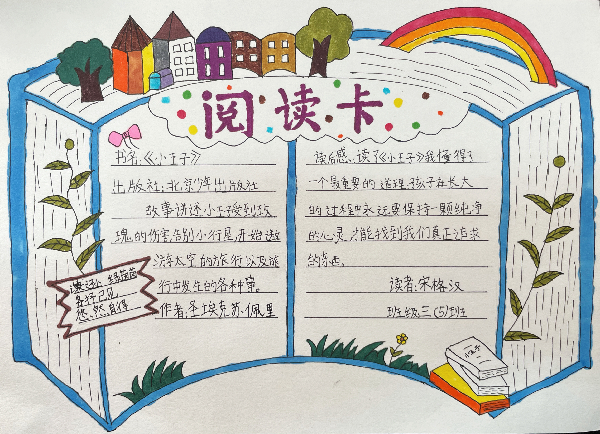 阅读卡
书名:《小王子》
出版社:北京少年出版社
故事讲述小王子受到玫
瑰的伤害告别小行星,开始遨
游太空的旅行以及旅
行中发生的各种事。
作者:圣埃克苏·佩里
各行己见,
悠然自得
读后感:读了《小王子》我懂得了
一个最重要的道理:孩子在长大
的过程中永远要保持一颗纯净
的心灵,才能找到我们真正追求
的东西。
读者:宋格汐
班级:三(5)班